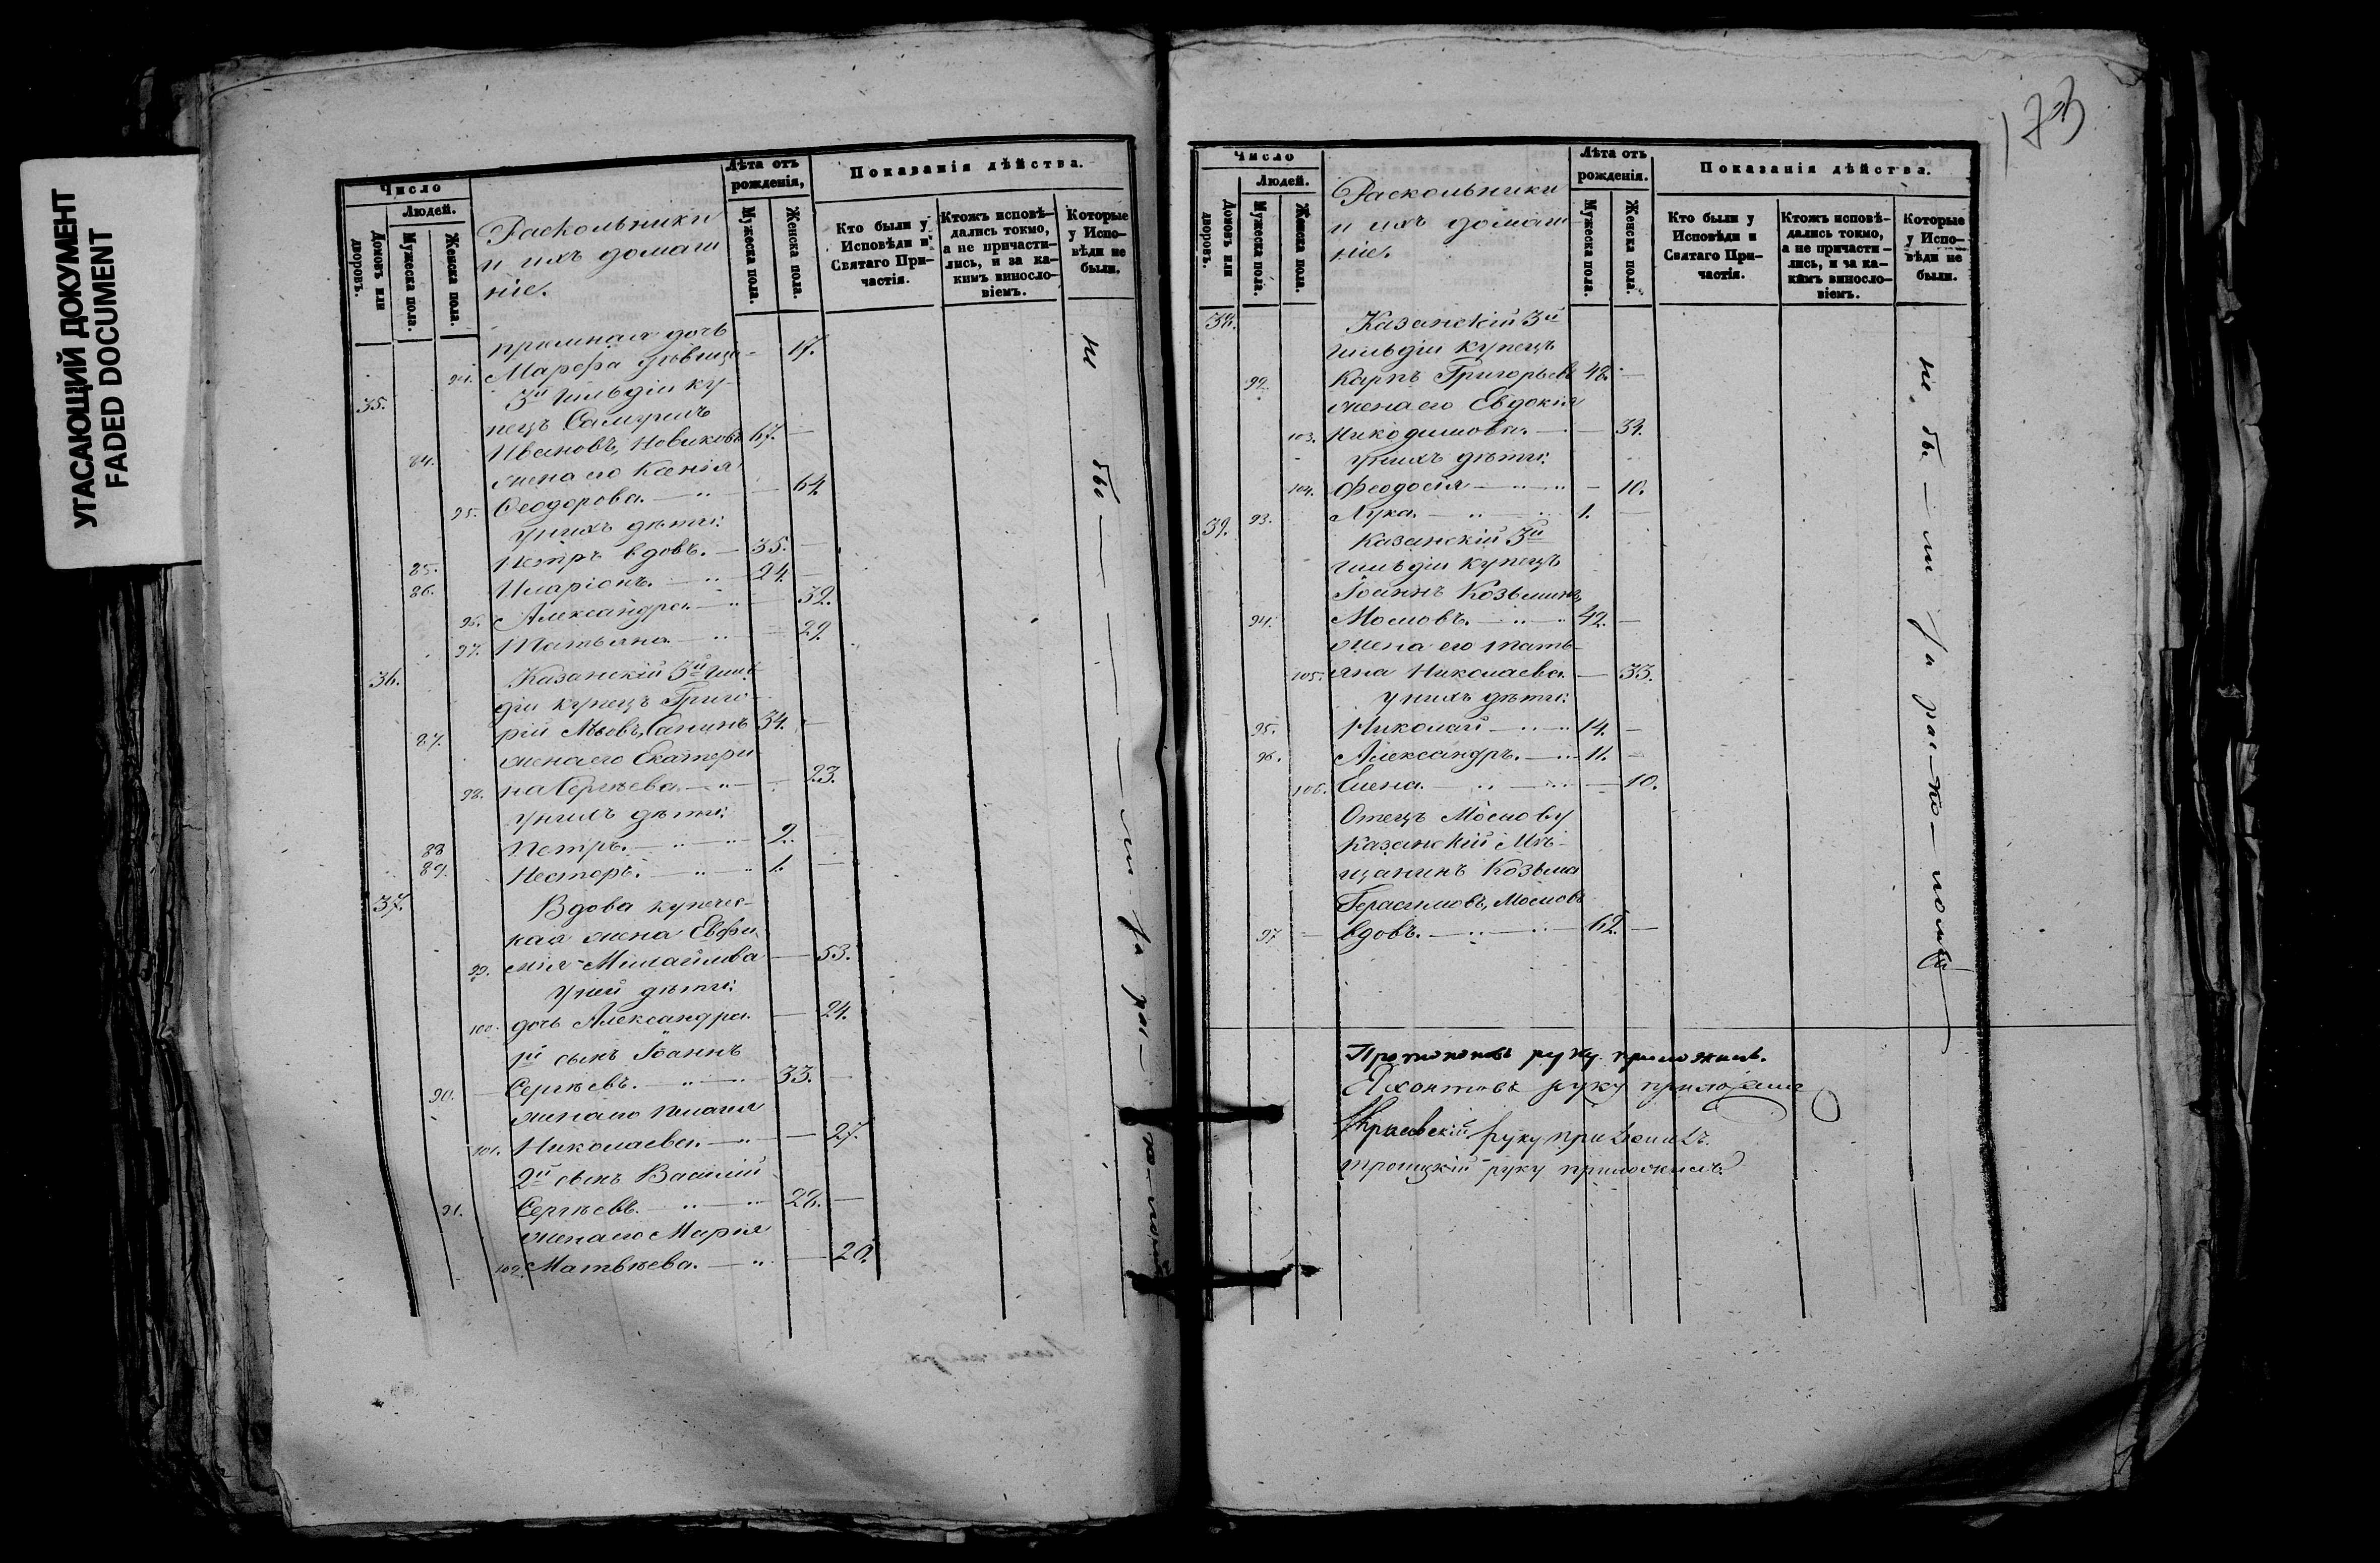 УГАСАЮЩИЙ ДОКУМЕНТ
FADED DOCUMENT
Число
Людей.
Домовъ или дворовъ.
Мужеска пола.
Женска пола.
Раскольники
и ихъ домаш
ніе.
Лѣта отъ рожденія,
Мужеска пола.
Женска пола.
Показанія дѣйства.
Кто были у Исповѣди и Святаго Причастія.
Ктожъ исповѣдались токмо, а не причастились, и за какимъ винословіемъ.
Которые у Исповѣди не были.
пріемная дочь
94. Марѳа дѣвица 17.
35. 3й гильдіи ку-
пецъ Самуилъ
84. Ивановъ, Новиковъ 67. —
жена его Ксенія
95. Ѳеодорова. — 64.
у нихъ дѣти:
85. Петръ вдовъ. — 35. —
86. Иларіонъ. — 24. —
96. Александра. — 32.
97. Татьяна. — 29.
36. Казанскій 3й гиль-
діи купецъ Григо-
87. рій Львовъ, Сапинъ 34. —
жена его Екатери
98. на Сергѣева — 23.
у нихъ дѣти:
88 Петръ. — 2. —
89. Несторъ. — 1. —
37. Вдова купечес-
кая жена Евфи
99. мія Михайлова — 53.
у ней дѣти:
100. дочь Александра. — 24.
1й сынъ Іоаннъ
90. Сергѣевъ. — 33. —
жена его Пелагія
101. Николаева. — 27.
2й сынъ Василій
91. Сергѣевъ. — 28. —
жена его Марія
102. Матвѣева. — 20.
не бы — ли за рас — ко — ломъ
173
Число
Людей.
Домовъ или дворовъ.
Мужеска пола.
Женска пола.
Раскольники
и ихъ домаш
ніе.
Лѣта отъ рожденія.
Мужеска пола.
Женска пола.
Показанія дѣйства.
Кто были у Исповѣди и Святаго Причастія.
Ктожъ исповѣдались токмо, а не причастились, и за какимъ винословіемъ.
Которые у Исповѣди не были.
38. Казанскій 3й
гильдіи купецъ
92. Карпъ Григорьевъ 48. —
жена его Евдокія
103. Никодимова. — 34.
у нихъ дѣти:
104. Феодосія — 10.
93. Лука. — 1. —
39. Казанскій 3й
гильдіи купецъ
Іоаннъ Козьминъ,
94. Мословъ. — 42. —
жена его Тать-
105. яна Николаева. — 33.
у нихъ дѣти:
95. Николай — 14. —
96. Александръ. — 11. —
106. Елена. — 10.
Отецъ Мослову
казанскій Мѣ-
щанинъ Козьма
Герасимовъ, Мословъ
97 вдовъ. — 62. —
не бы — ли за рас — ко — ломъ
Протопоповъ руку приложилъ.
Яхонтовъ руку приложилъ
руку приложилъ.
Троицкій руку приложилъ